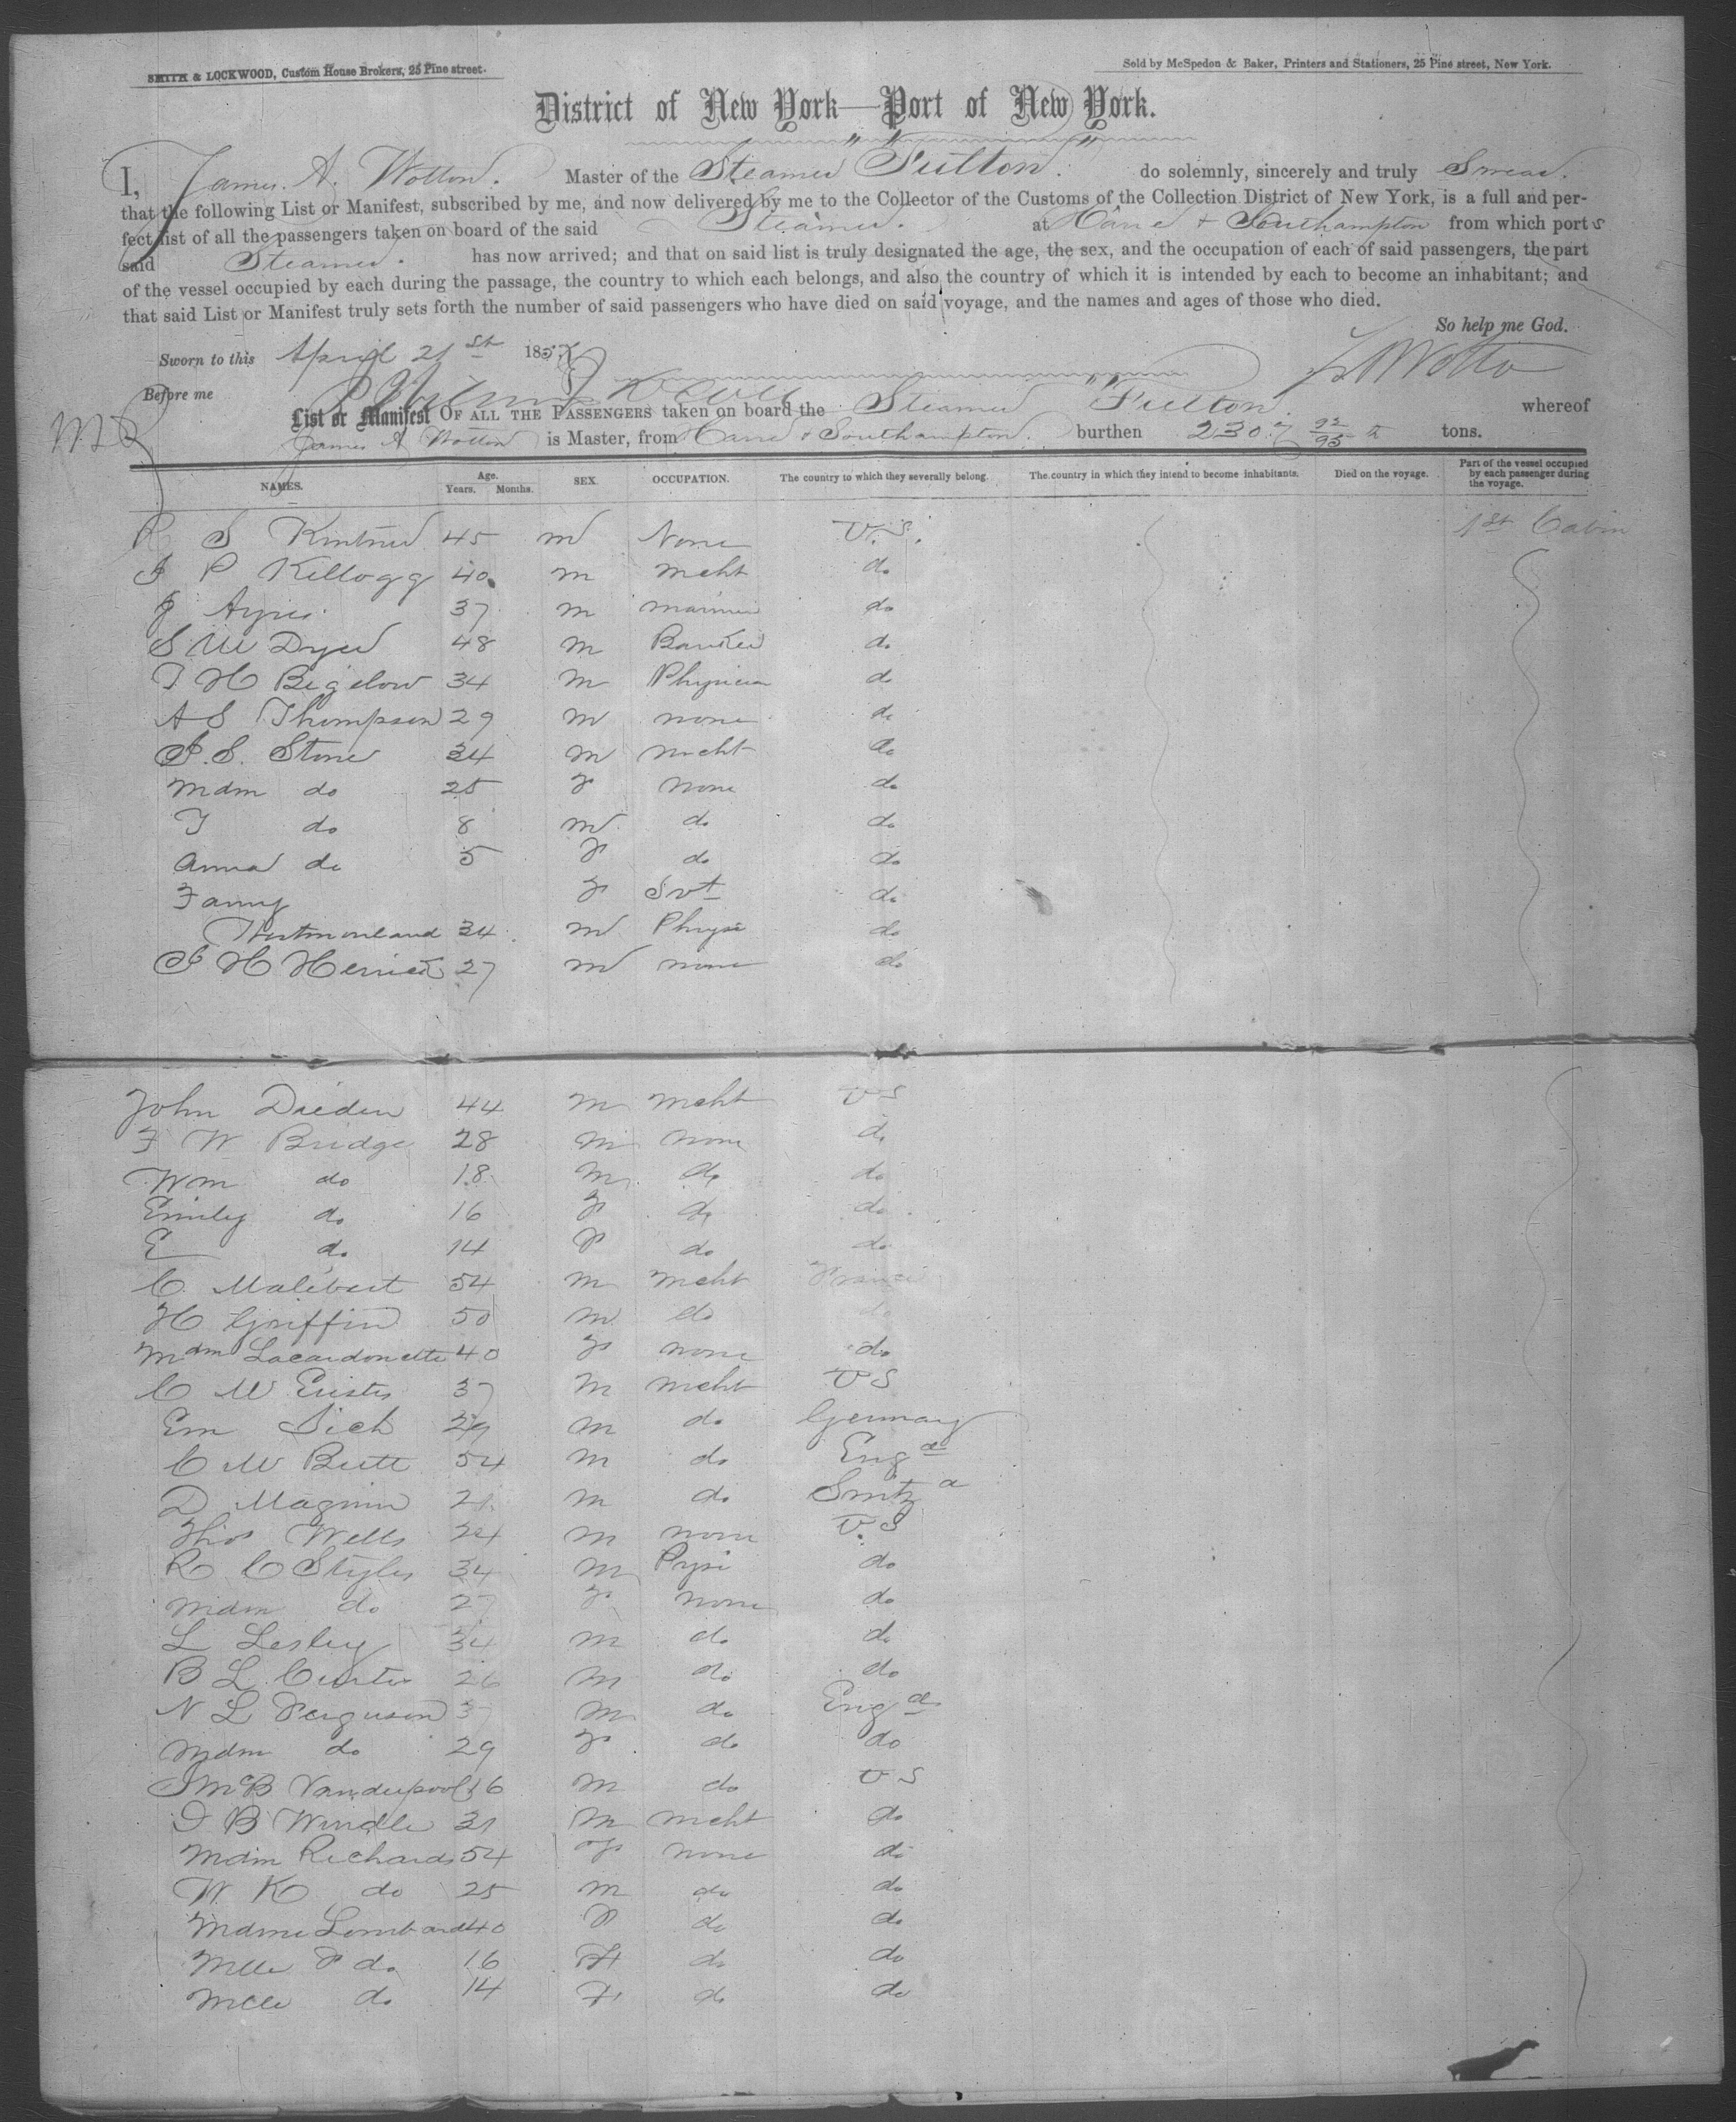 SMITH & LOCKWOOD, Custom House Brokers, 25 Pine street.
Sold by McSpedon & Baker, Printers and Stationers, 25 Pine street, New York.
District of New York—Port of New York.
I, James A. Wotton. Master of the Steamer "Fulton" do solemnly, sincerely and truly Swear.
that the following List or Manifest, subscribed by me, and now delivered by me to the Collector of the Customs of the Collection District of New York, is a full and per-
fect list of all the passengers taken on board of the said Steamer. at Havre & Southampton from which ports
said Steamer. has now arrived; and that on said list is truly designated the age, the sex, and the occupation of each of said passengers, the part
of the vessel occupied by each during the passage, the country to which each belongs, and also the country of which it is intended by each to become an inhabitant; and
that said List or Manifest truly sets forth the number of said passengers who have died on said voyage, and the names and ages of those who died.
So help me God.
Sworn to this April 21st 1857
J A Wotton
Before me
List or Manifest OF ALL THE PASSENGERS taken on board the Steamer "Fulton" whereof
James A Wotton is Master, from Havre & Southampton. burthen 2307 92/95 th tons.
NAMES. Age. Years. Months. SEX. OCCUPATION. The country to which they severally belong. The country in which they intend to become inhabitants. Died on the voyage. Part of the vessel occupied by each passenger during the voyage.
R S Kintner 45 m None U.S. 1st Cabin
P Kellogg 40 m mcht do
J Ayres 37 m mariner do
S W Dyer 48 m Banker do
T H Bigelow 34 m Physician do
A S Thompson 29 m none do
J. S. Stone 34 m mcht do
Mdm do 25 F none do
T do 8 m do do
Anna do 5 F do do
Fanny F Svt do
Westmoreland 34 m Physi do
J H Herrick 27 m none do
John Dreden 44 m mcht US
F W Bridge 28 m none do
Wm do 18 m do do
Emily do 16 F do do
E do 14 F do do
C. Malibert 54 m mcht France
H Griffin 50 m do do
Mdm Lacardonette 40 F none do
C W 37 m mcht US
Em Sich 29 m do Germany
C W Butt 54 m do Engd
D Magnin 21 m do Smitz a
Thos Wells 24 m none U.S
R C Styles 34 m Pysi do
Mdm do 27 F none do
L Lesley 34 m do do
B L Curtis 26 m do do
N L Ferguson 37 m do Engd
Mdm do 29 F do do
J McB Vanderpool 16 m do US
D B Windle 31 m mcht do
Mdm Richards 54 F none do
W. K do 25 m do do
Mdme Lombard 40 F do do
Mlle P do 16 F do do
Mlle do 14 F do do